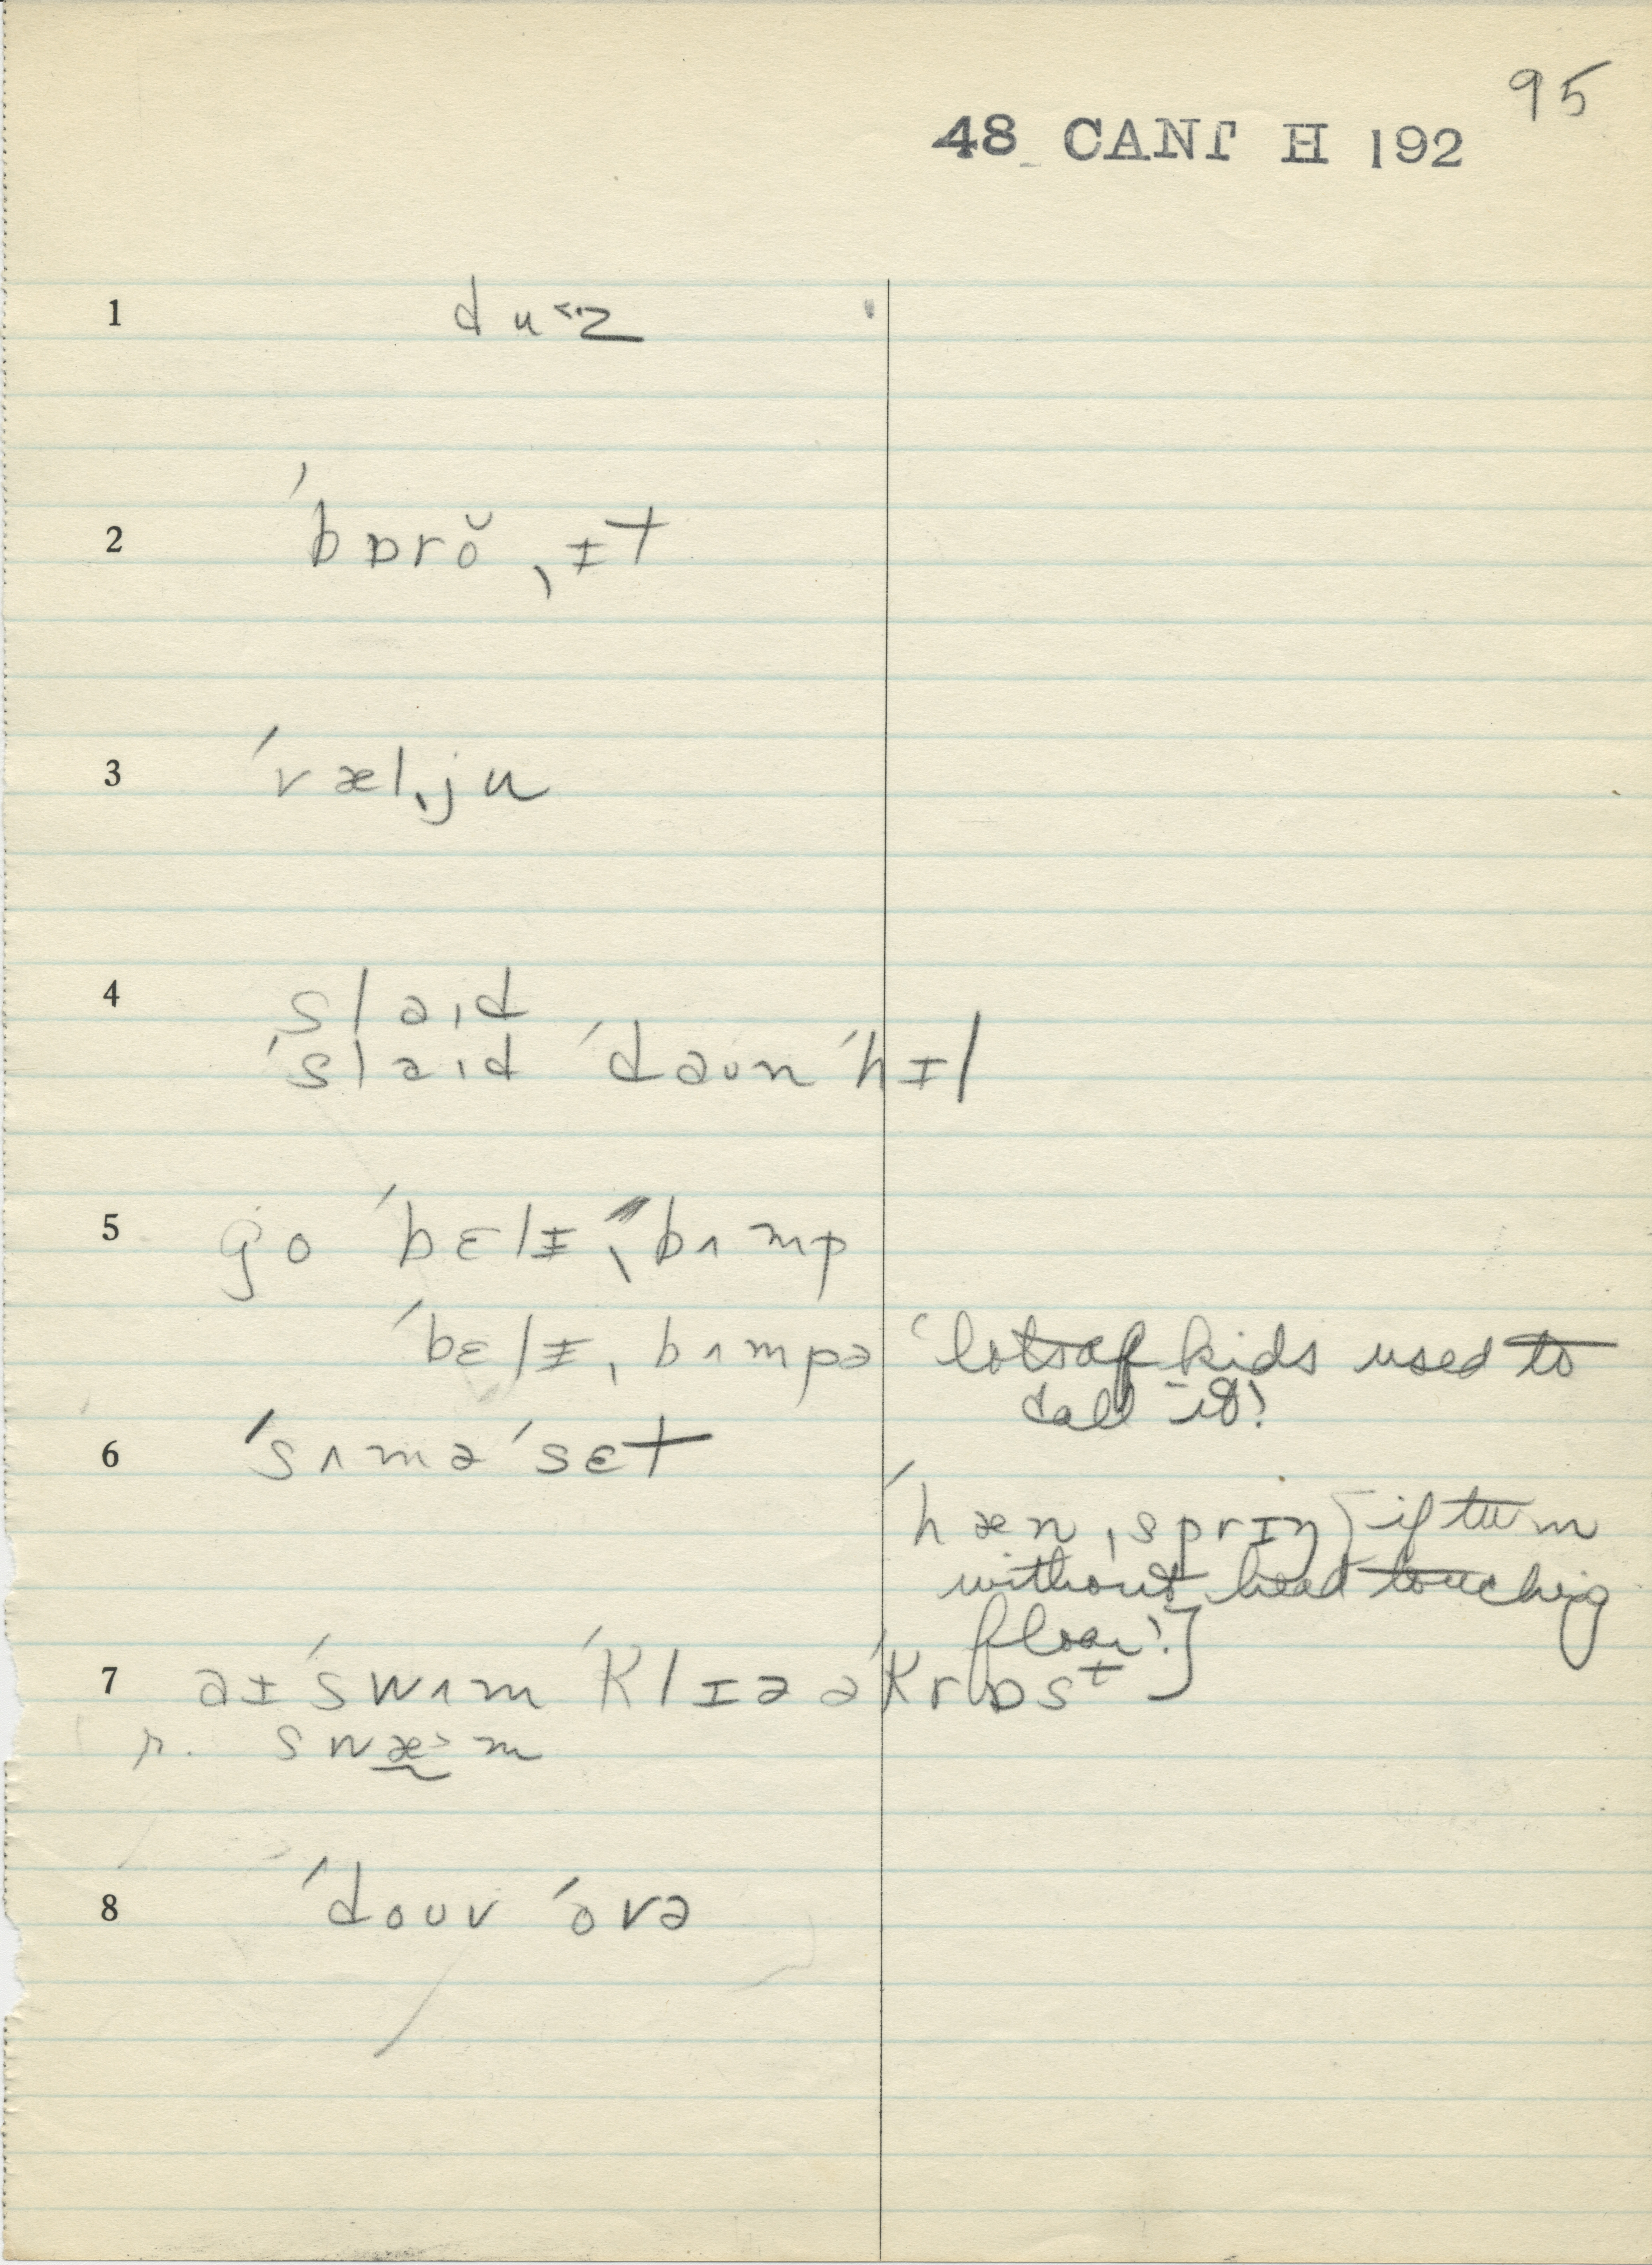 95
48 CANT H 192
1 du˂·z
2 ˈbɒrŏˌɪt
3 ˈvælˌju
4 slaɪd
ˈslaɪd ˈdaun ˈhɪl
5 go ˈbɛlɪˌbʌmp
ˈbɛlɪˌbʌmpə ‘lotsof kids used to
call it’
6 ˈsʌməˈsɛt
ˈhænˌsprɪŋ if turn
without head touching
floor’]
7 aɪ ˈswʌm ˈklɪə əˈkrɒsᵗ
r. swæ˃m
8 ˈdouv ˈovə